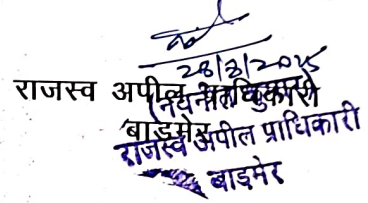 28/8/2025
राजस्व अपील प्राधिकारी
बाड़मेर
राजस्व अपील प्राधिकारी
बाड़मेर